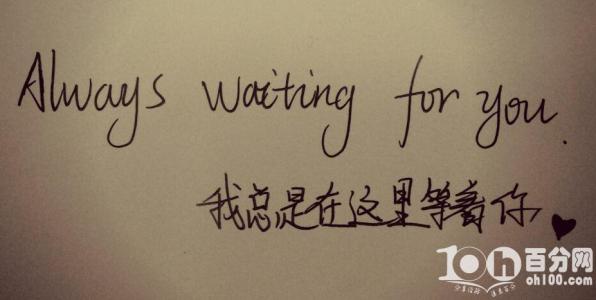 Always waiting for you.
我总是在这里等着你
10h百分网
oh100.com